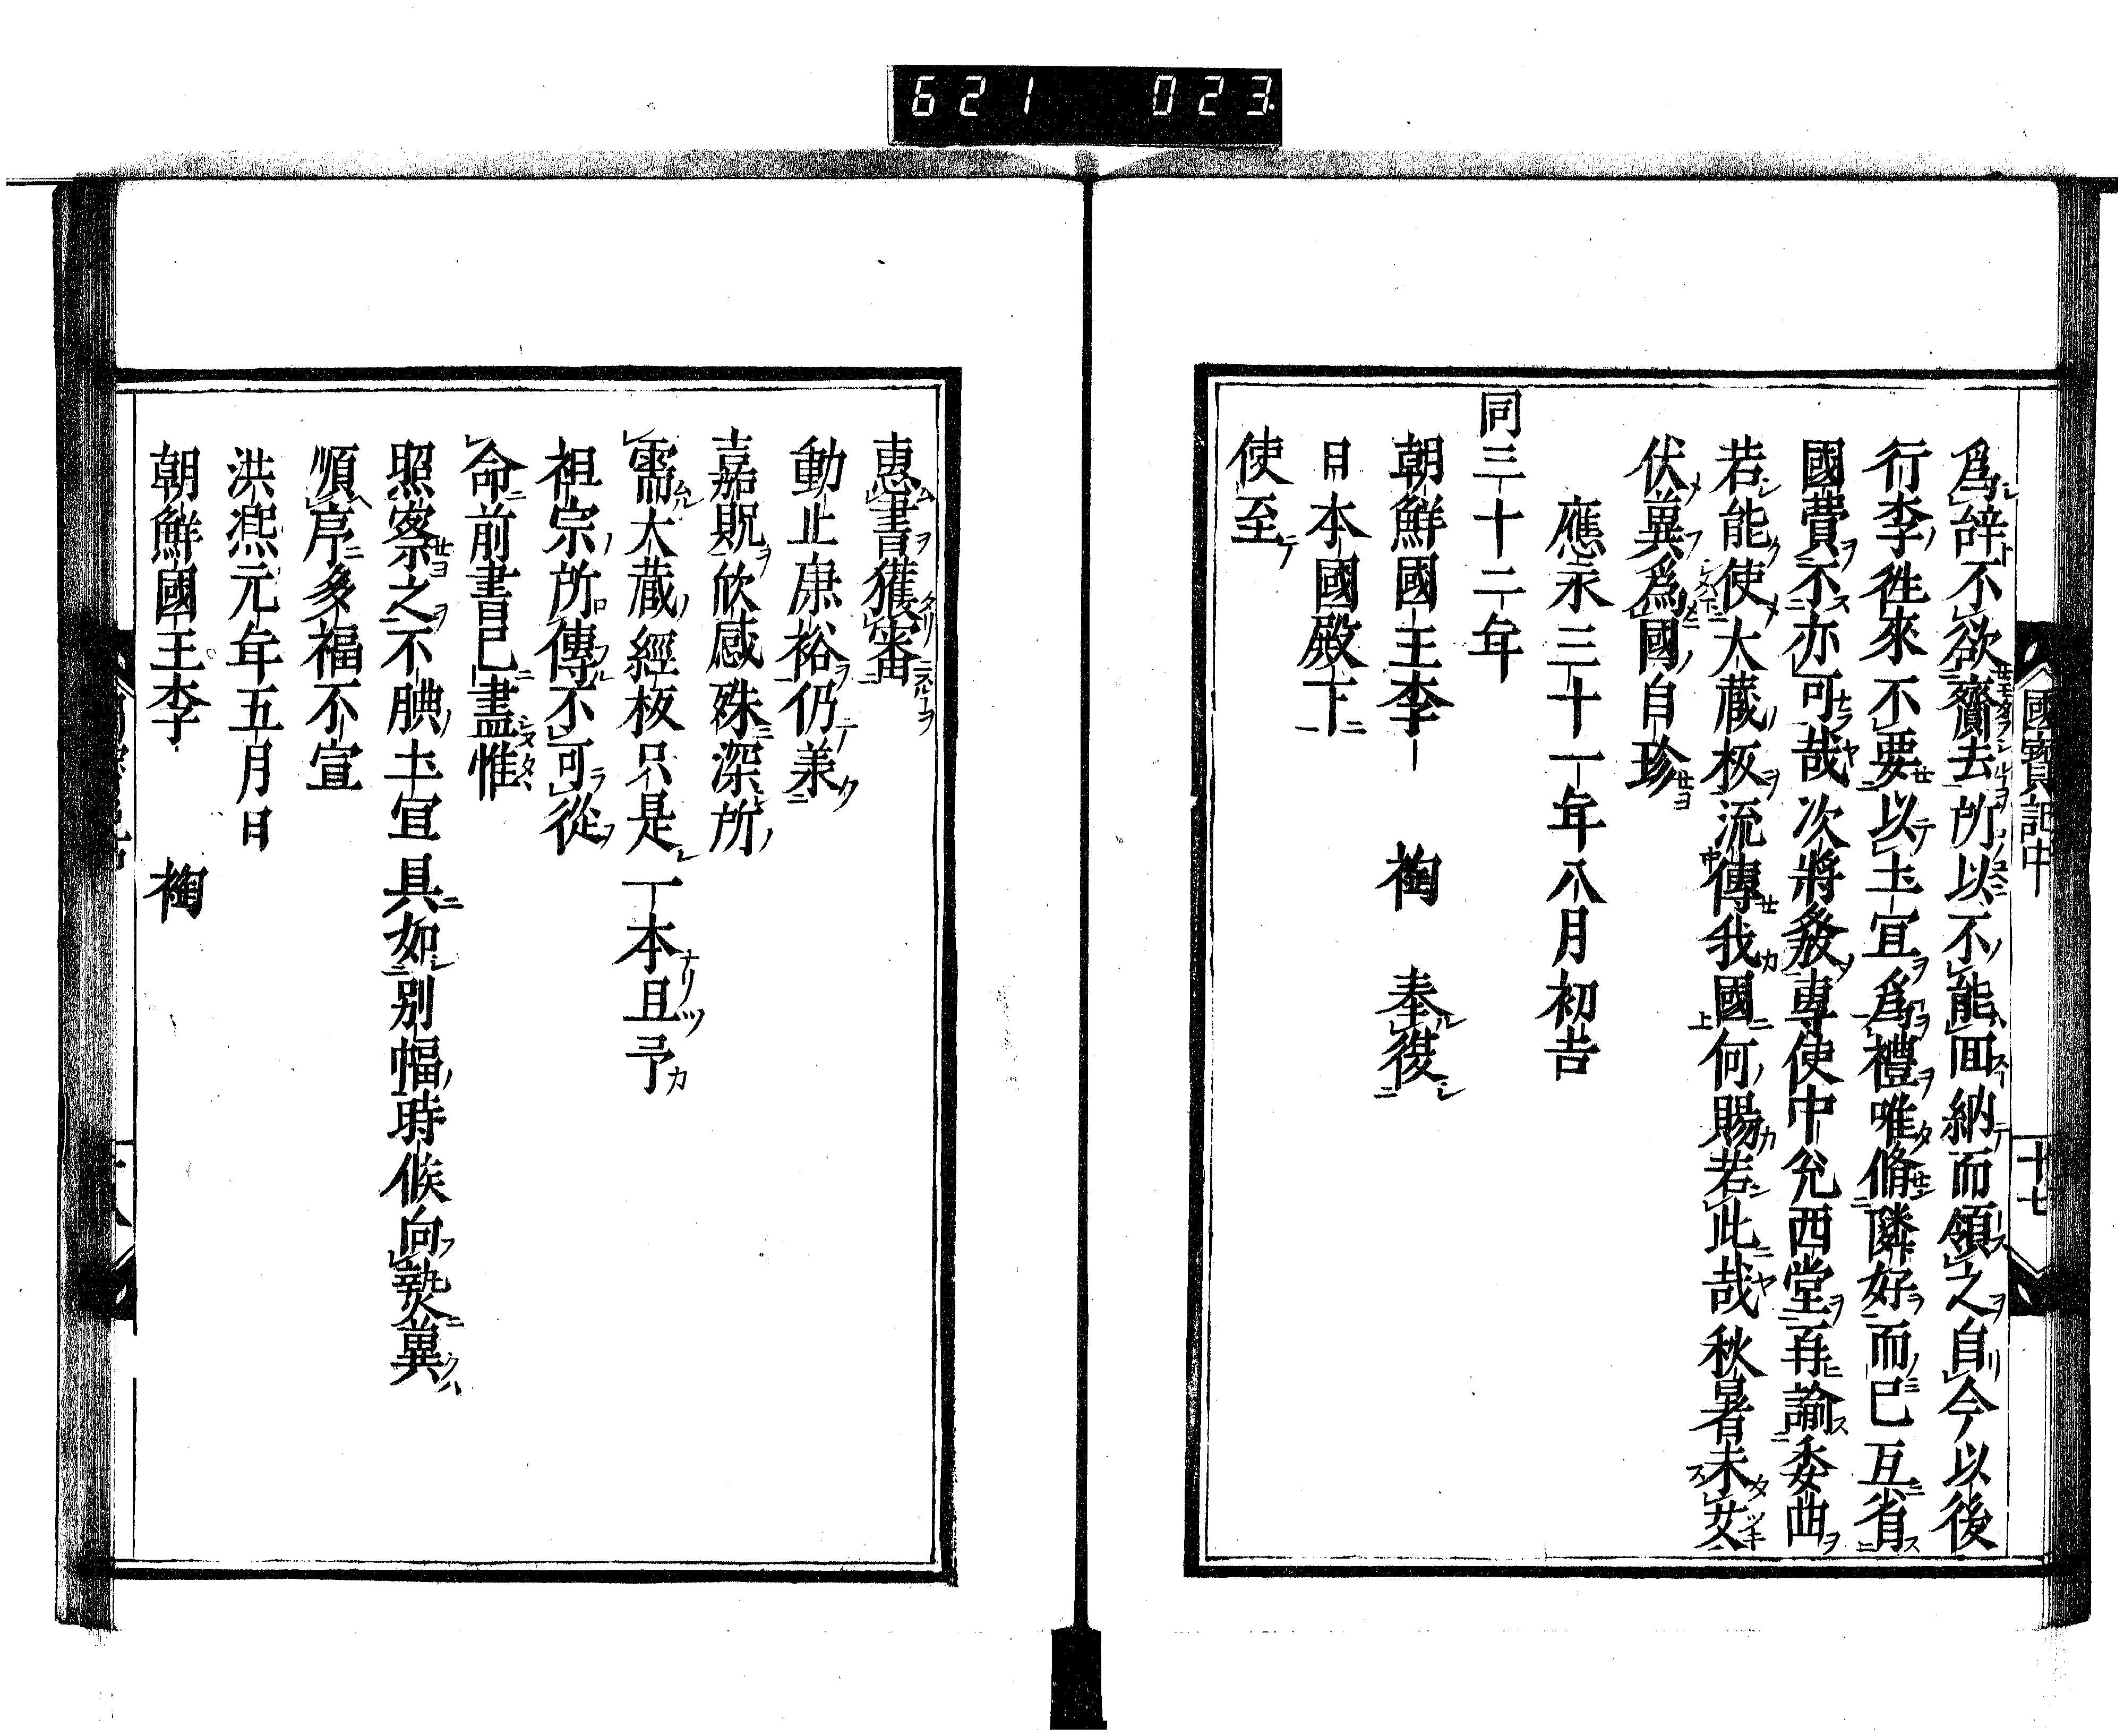 621 023
國寶記中
十七
爲辭不欲齎去所以不能面納而領之自今以後
行李徃來不要以土宜爲禮唯脩隣好而已互省
國費不亦可哉次將發專使中兊西堂再諭委曲
若能使大藏板流傳我國何賜若此哉秋暑未艾
伏冀爲國自珍
應永三十一年八月初吉
同三十二年
朝鮮國王李 裪 奉復
日本國殿下
使至
惠書獲審
動止康裕仍兼
嘉貺欣感殊深所
需大藏經板只是一本且予
祖宗所傳不可從
命前書已盡惟
照察之不腆土宜具如別幅時候向熱冀
順序多福不宣
洪熙元年五月日
朝鮮國王李 裪